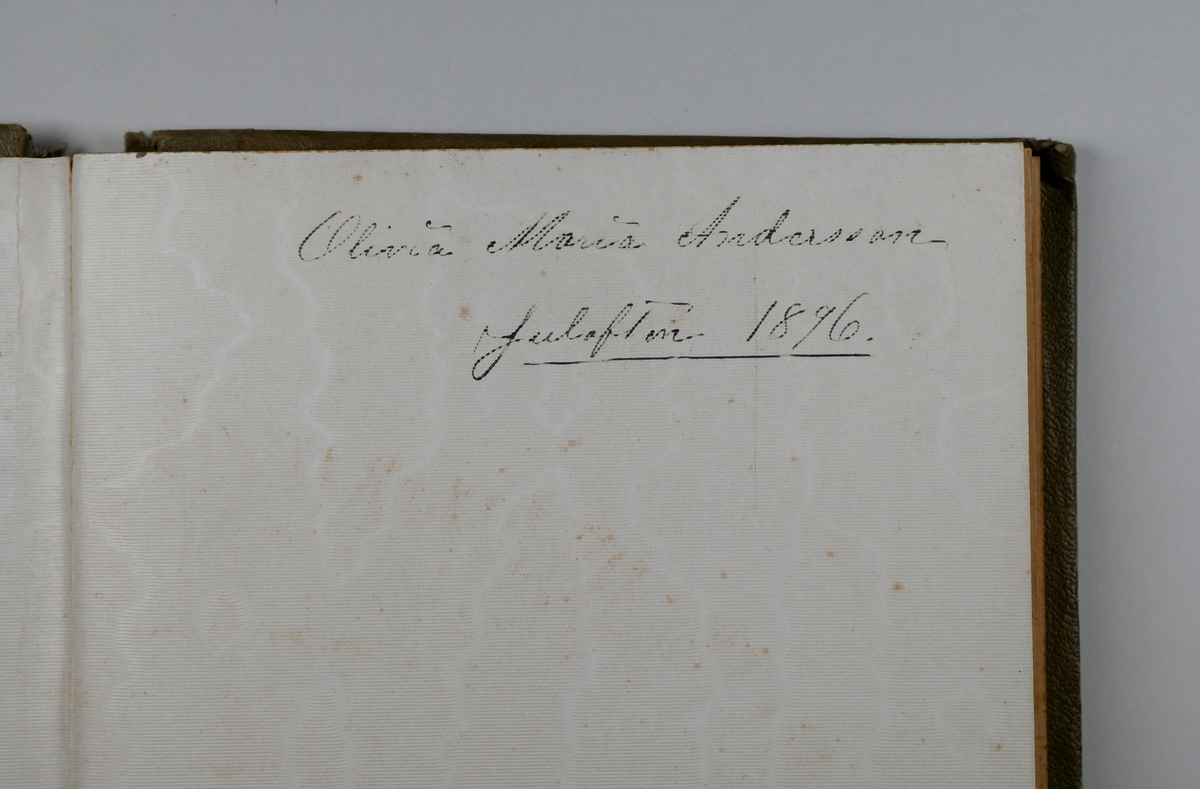 Olivia Maria Andersson
Julafton 1896.